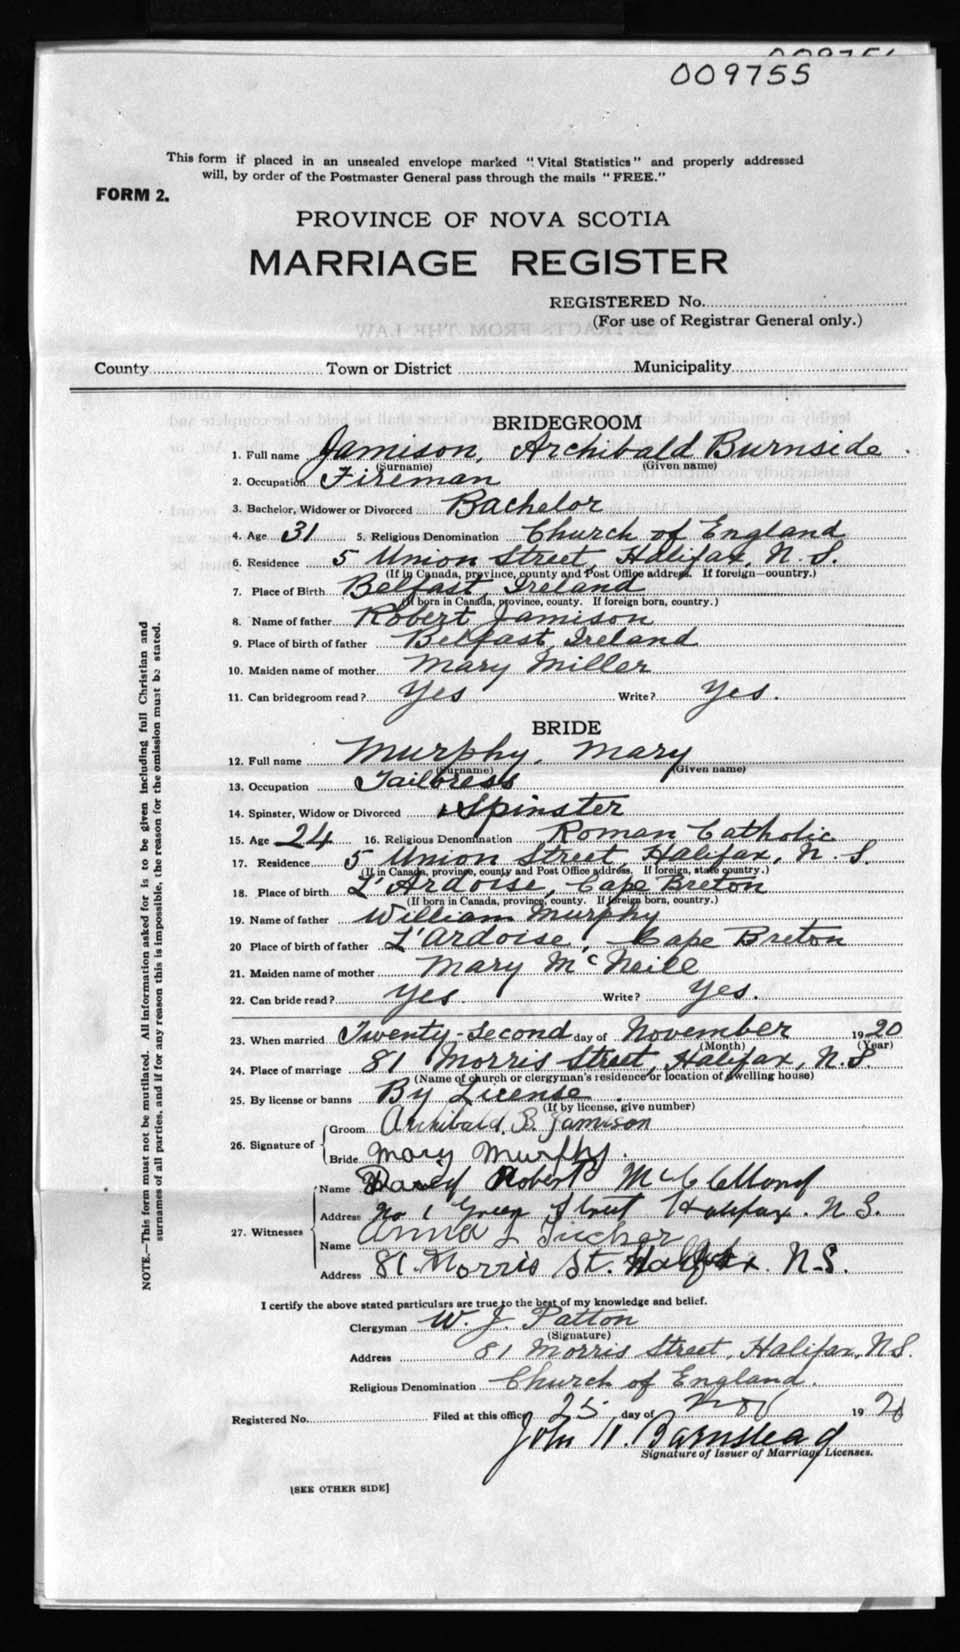 009756
009755
This form if placed in an unsealed envelope marked "Vital Statistics" and properly addressed
will, by order of the Postmaster General pass through the mails "FREE."
FORM 2.
PROVINCE OF NOVA SCOTIA
MARRIAGE REGISTER
REGISTERED No.
(For use of Registrar General only.)
County Town or District Municipality
BRIDEGROOM
1. Full name Jamison, Archibald Burnside
(Surname) (Given name)
2. Occupation Fireman
3. Bachelor, Widower or Divorced Bachelor
4. Age 31 5. Religious Denomination Church of England
6. Residence 5 Union Street, Halifax, N. S.
(If in Canada, province, county and Post Office address. If foreign—country.)
7. Place of Birth Belfast, Ireland
(If born in Canada, province, county. If foreign born, country.)
8. Name of father Robert Jamison
9. Place of birth of father Belfast, Ireland
10. Maiden name of mother Mary Miller
11. Can bridegroom read? Yes Write? Yes.
BRIDE
12. Full name Murphy, Mary
(Surname) (Given name)
13. Occupation Tailoress
14. Spinster, Widow or Divorced Spinster
15. Age 24 16. Religious Denomination Roman Catholic
17. Residence 5 Union Street, Halifax, N. S.
(If in Canada, province, county and Post Office address. If foreign, state country.)
18. Place of birth L'Ardoise, Cape Breton
(If born in Canada, province, county. If foreign born, country.)
19. Name of father William Murphy
20 Place of birth of father L'Ardoise, Cape Breton
21. Maiden name of mother Mary McNeill
22. Can bride read? Yes. Write? Yes.
23. When married Twenty-Second day of November 1920
(Month) (Year)
24. Place of marriage 81 Morris Street, Halifax, N.S.
(Name of church or clergyman's residence or location of dwelling house)
25. By license or banns By License.
(If by license, give number)
26. Signature of
Groom Archibald. B. Jamison
Bride Mary Murphy.
27. Witnesses
Name David Robert McClellond
Address No 1 Green Street Halifax. N.S.
Name Anna L Tucker
Address 81. Morris St. Halifax. N.S.
I certify the above stated particulars are true to the best of my knowledge and belief.
Clergyman W. J. Patton
(Signature)
Address 81 Morris Street, Halifax, N.S.
Religious Denomination Church of England.
Registered No. Filed at this office 25 day of Nov 1920
John H. Barnstead
Signature of Issuer of Marriage Licenses.
[SEE OTHER SIDE]
NOTE.—This form must not be mutilated. All information asked for is to be given including full Christian and
surnames of all parties, and if for any reason this is impossible, the reason for the omission must be stated.